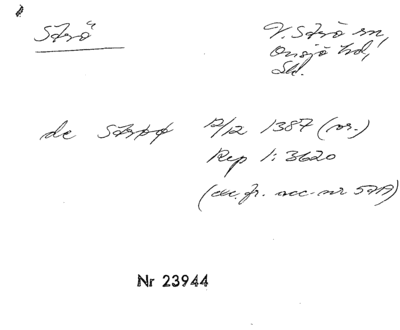 Strö
V. Strö sn,
Onsjö hd,
Sk.
de Strøø 12/12 1387 (or.)
Rep 1:3620
fr. acc. nr
Nr 23944